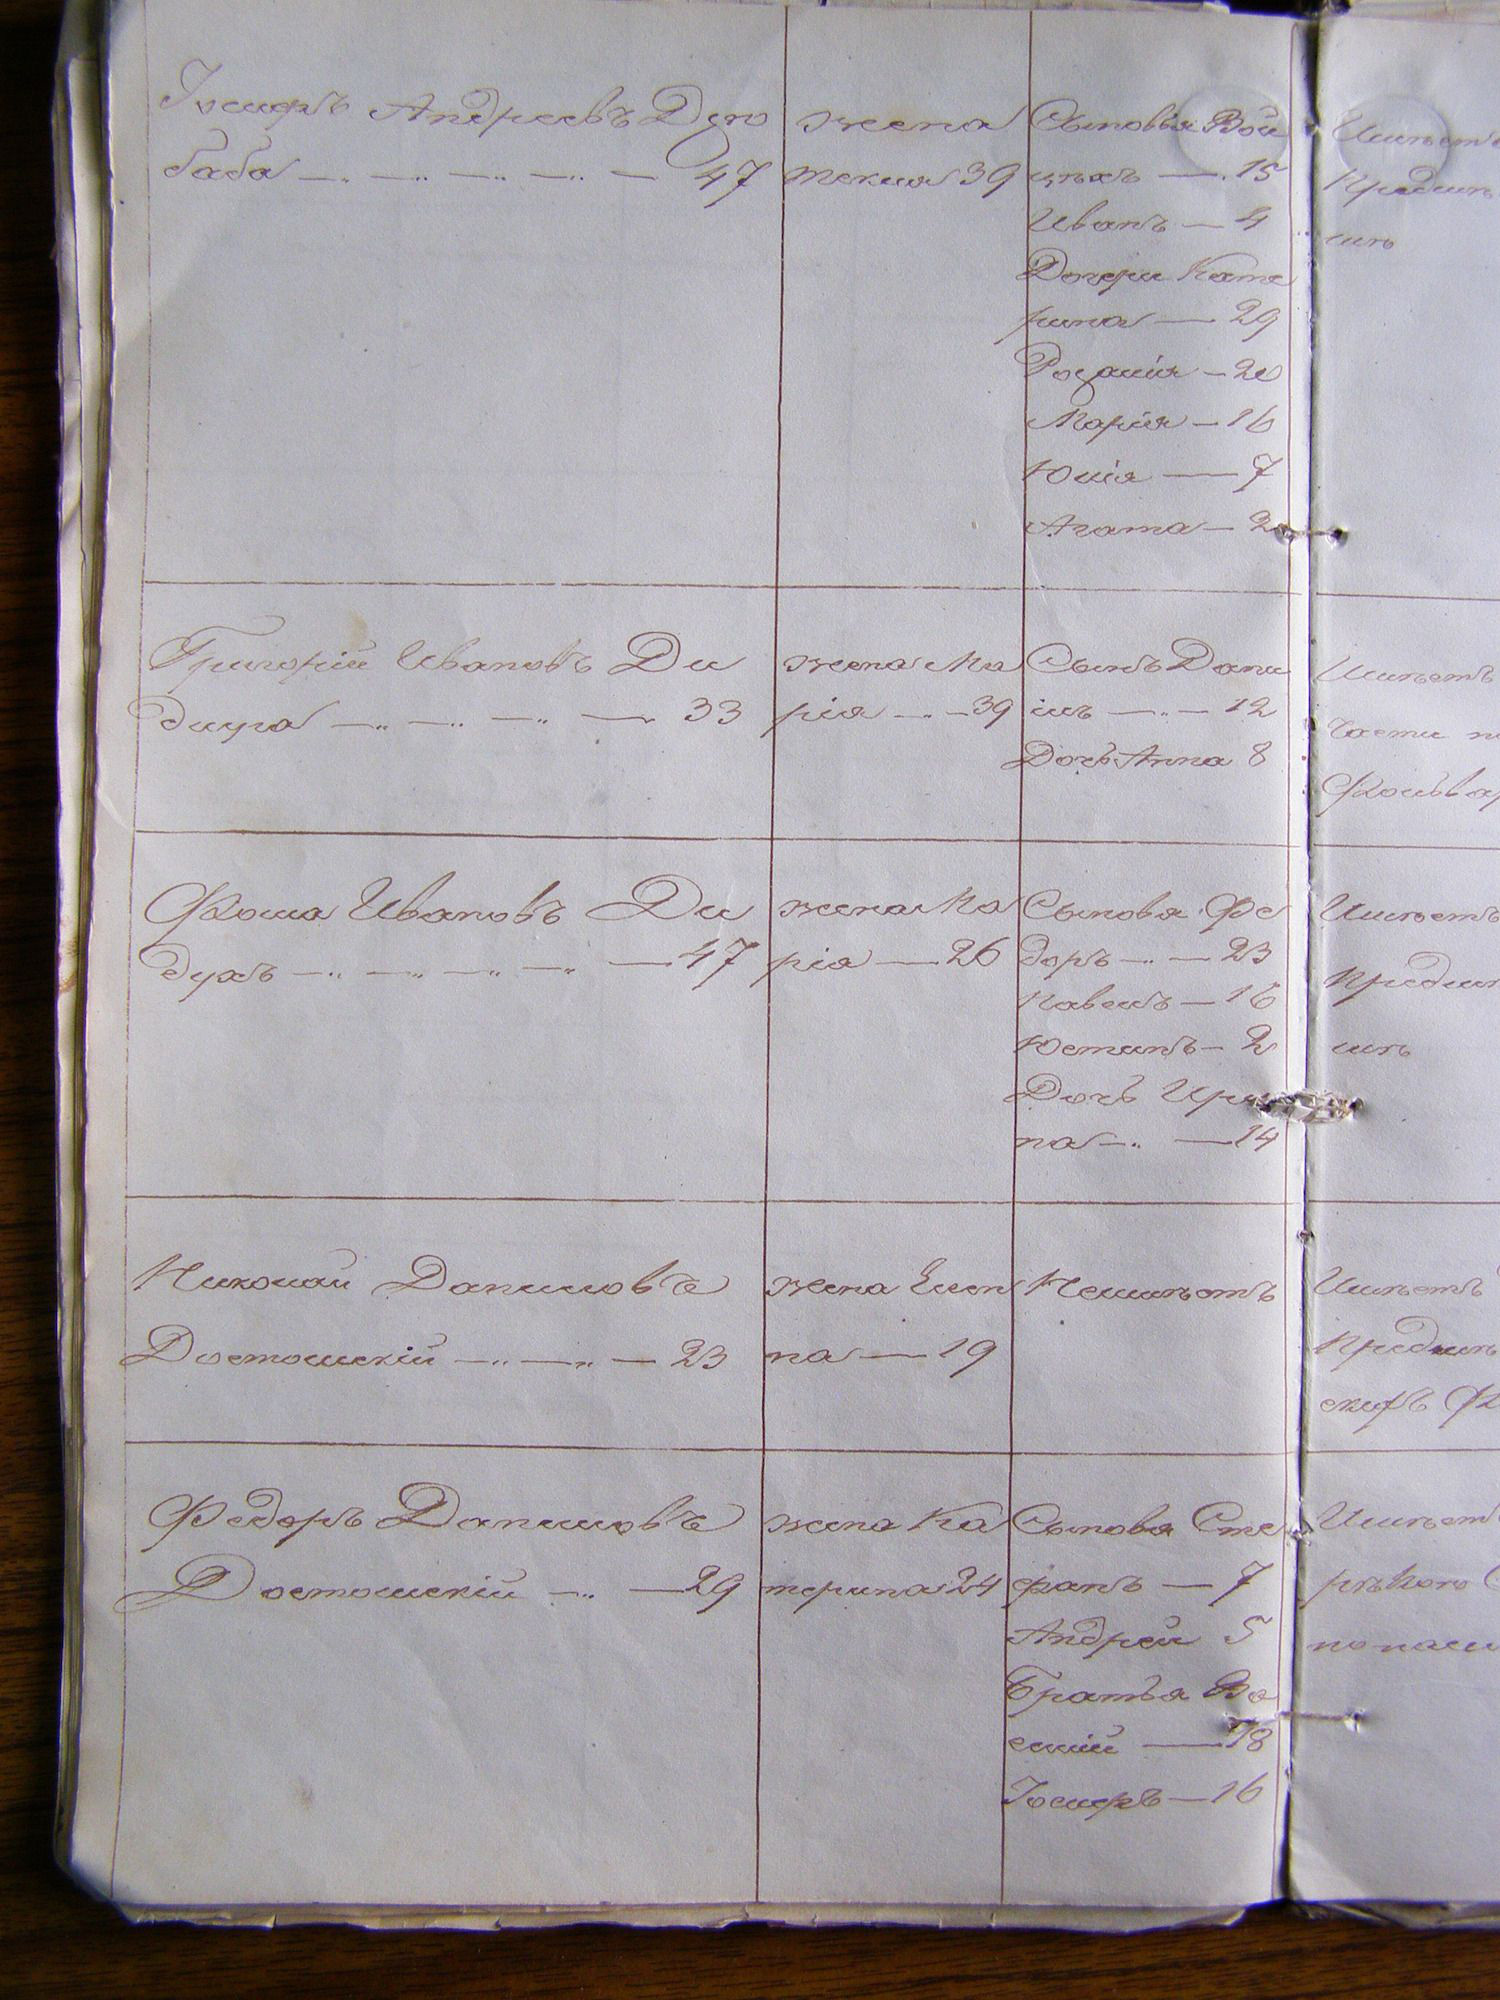 Іосифъ Андреевъ Дзю
баба — 47
жена
Текля 39
Сыновья Вой
цѣхъ — 15
Иванъ — 4
Дочери Кате
рина — 29
Розалія — 20
Марія — 16
Юлія — 7
Агата — 2
Имѣетъ
Григорій Ивановъ Ди
дуга — 33
жена Ма
рія — 39
Сынъ Дани
илъ — 12
Дочь Анна 8
Имѣетъ
части
Фольвар
Фома Ивановъ Ди
духъ — 47
жена Ма
рія — 26
Сыновя Фе
доръ — 23
Павелъ — 16
Юстинъ — 2
Дочь Ири
на — 14
Имѣетъ
Николай Даниловъ
Достоинскій — 23
жена Елен
на — 19
Неимѣетъ
Имѣетъ
Федоръ Даниловъ
Достоинскій — 29
жена Ка
терина 24
Сыновя Сте
фанъ — 7
Андрей 5
Братья Ва
силій — 18
Іосифъ — 16
Имѣетъ